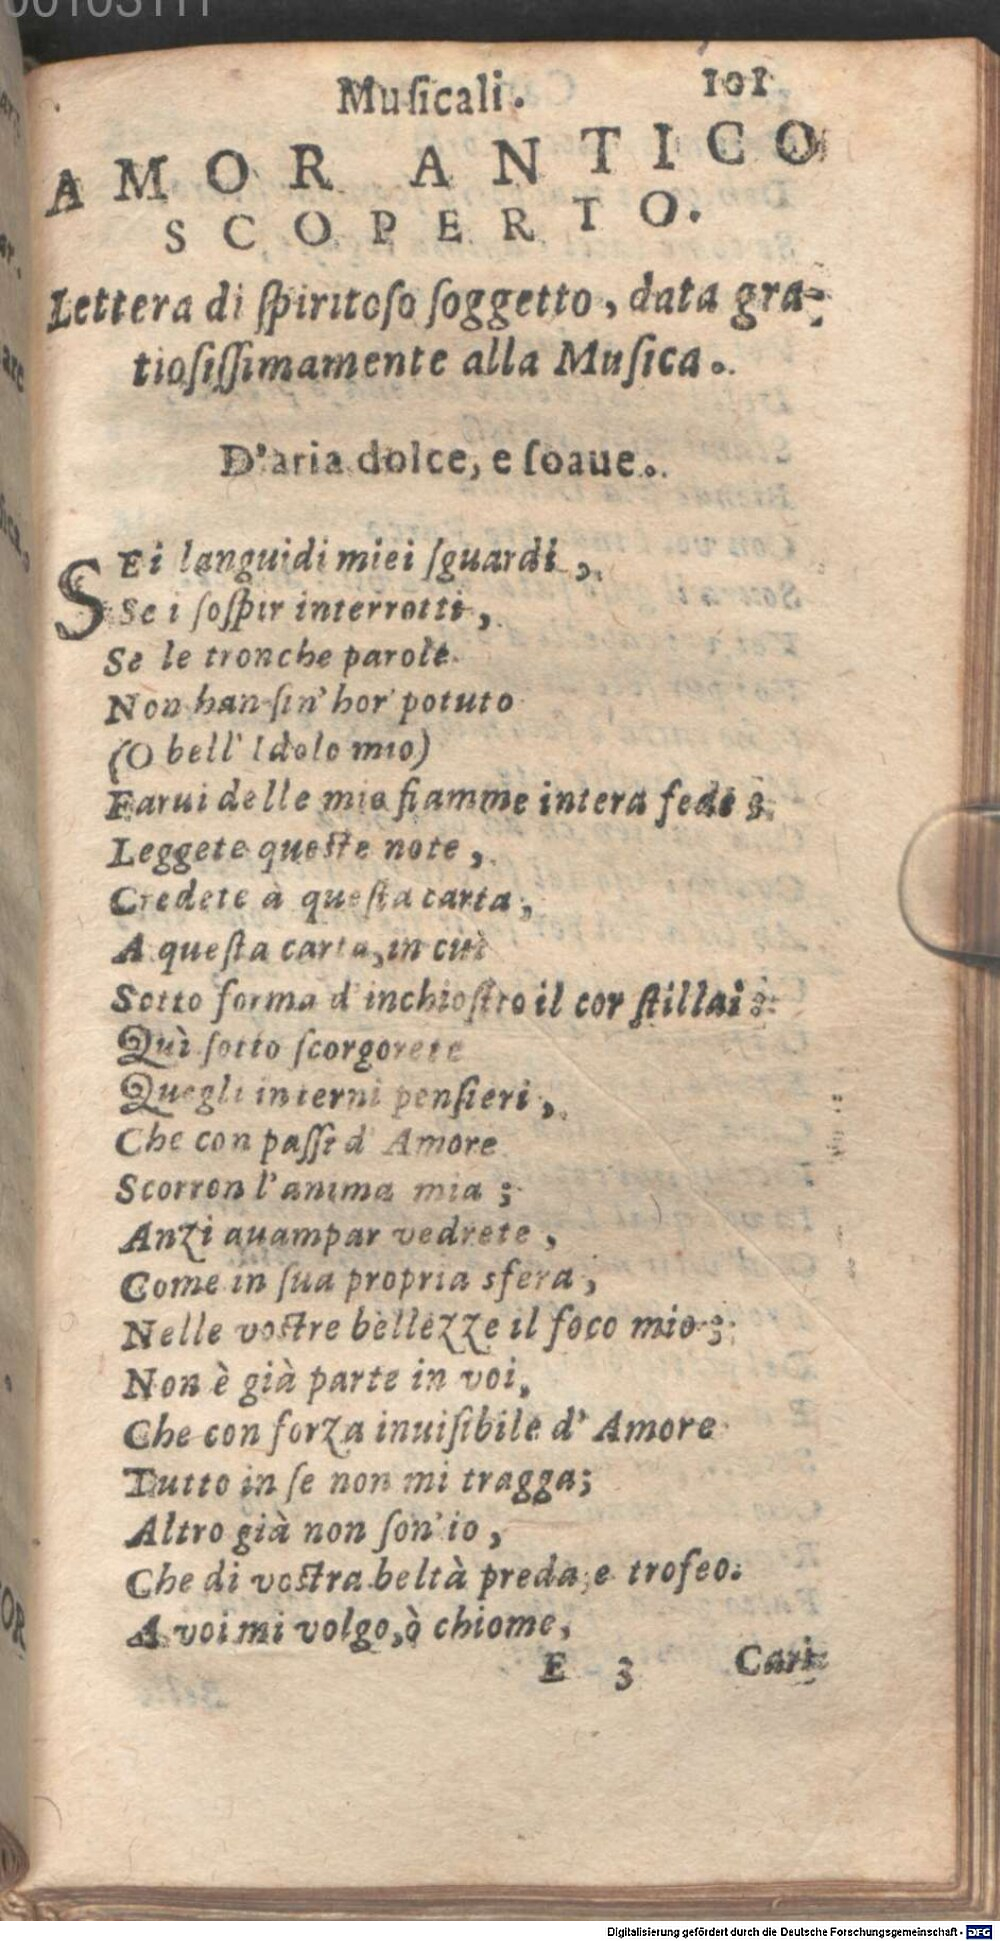 00103111
Muſicali. 101
AMOR ANTICO
SCOPERTO.
Lettera di ſpiritoſo ſoggetto, data gra-
tioſiſſimamente alla Muſica.
D'aria dolce, e ſoaue.
SEi languidi miei ſguardi,
Se i ſoſpir interrotti,
Se le tronche parole
Non han ſin'hor potuto
(O bell'Idolo mio)
Farui delle mie fiamme intera fede;
Leggete queſte note,
Credete à queſta carta,
A queſta carta, in cui
Sotto forma d'inchioſtro il cor ſtillai:
Quì ſotto ſcorgerete
Quegli interni penſieri,
Che con paſſi d'Amore
Scorron l'anima mia;
Anzi auampar vedrete,
Come in ſua propria sfera,
Nelle voſtre bellezze il foco mio;
Non è già parte in voi,
Che con forza inuiſibile d'Amore
Tutto in ſe non mi tragga;
Altro già non ſon'io,
Che di voſtra beltà preda, e trofeo.
A voi mi volgo, ò chiome,
E 3 Cari
Digitalisierung gefördert durch die Deutsche Forschungsgemeinschaft - DFG